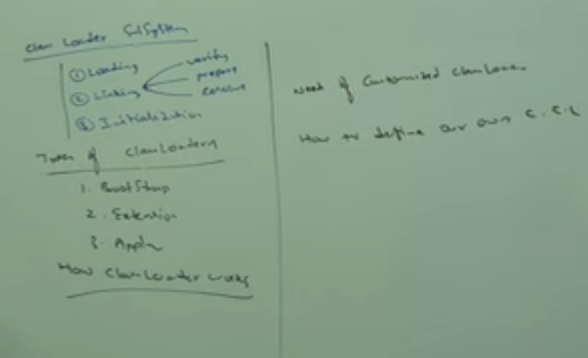 Class Loader SubSystem
① Loading
② Linking
verify
prepare
Resolve
③ Initialization
Types of ClassLoaders
1. BootStrap
2. Extension
3. Appln
How ClassLoader works
Need of Customized ClassLoader
How to define our own C.C.L